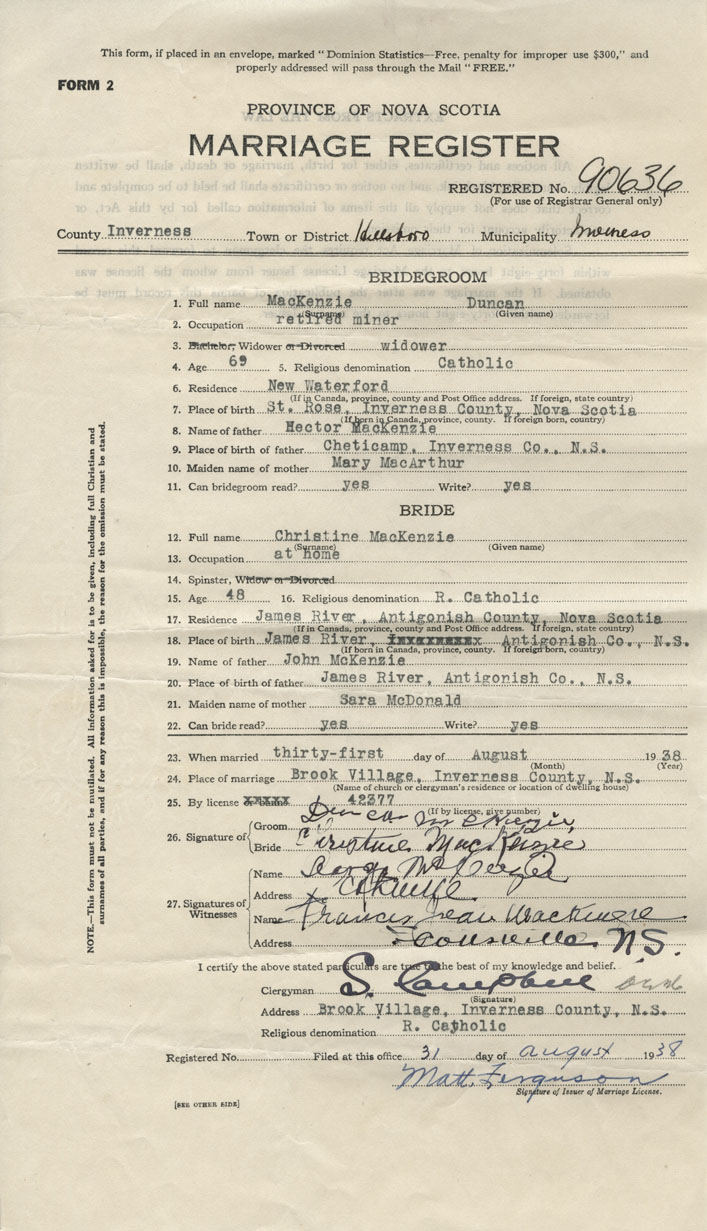 This form, if placed in an envelope, marked "Dominion Statistics—Free, penalty for improper use $300," and
properly addressed will pass through the Mail "FREE."
FORM 2
PROVINCE OF NOVA SCOTIA
MARRIAGE REGISTER
REGISTERED No. 90636
(For use of Registrar General only)
County Inverness Town or District Hillsboro Municipality Inverness
BRIDEGROOM
1. Full name MacKenzie Duncan
(Surname) (Given name)
2. Occupation retired miner
3. Bachelor, Widower or Divorced widower
4. Age 69 5. Religious denomination Catholic
6. Residence New Waterford
(If in Canada, province, county and Post Office address. If foreign, state country)
7. Place of birth St. Rose, Inverness County, Nova Scotia
(If born in Canada, province, county. If foreign born, country)
8. Name of father Hector MacKenzie
9. Place of birth of father Cheticamp, Inverness Co., N.S.
10. Maiden name of mother Mary MacArthur
11. Can bridegroom read? yes Write? yes
BRIDE
12. Full name Christine MacKenzie
(Surname) (Given name)
13. Occupation at home
14. Spinster, Widow or Divorced
15. Age 48 16. Religious denomination R. Catholic
17. Residence James River, Antigonish County, Nova Scotia
(If in Canada, province, county and Post Office address. If foreign, state country)
18. Place of birth James River, Antigonish Co., N.S.
(If born in Canada, province, county. If foreign born, country)
19. Name of father John McKenzie
20. Place of birth of father James River, Antigonish Co., N.S.
21. Maiden name of mother Sara McDonald
22. Can bride read? yes Write? yes
23. When married thirty-first day of August 1938
(Month) (Year)
24. Place of marriage Brook Village, Inverness County, N.S.
(Name of church or clergyman's residence or location of dwelling house)
25. By license 42377
(If by license, give number)
26. Signature of Groom Duncan McKenzie
Bride Christine MacKenzie
27. Signatures of Witnesses
Name
Address
Name Frances Jean MacKenzie
Address Scottsville N.S.
I certify the above stated particulars are true to the best of my knowledge and belief.
Clergyman S. Campbell
(Signature)
Address Brook Village, Inverness County, N.S.
Religious denomination R. Catholic
Registered No. Filed at this office 31 day of August 1938
Matt. Ferguson
Signature of Issuer of Marriage License.
[SEE OTHER SIDE]
NOTE.—This form must not be mutilated. All information asked for is to be given, including full Christian and
surnames of all parties, and if for any reason this is impossible, the reason for the omission must be stated.